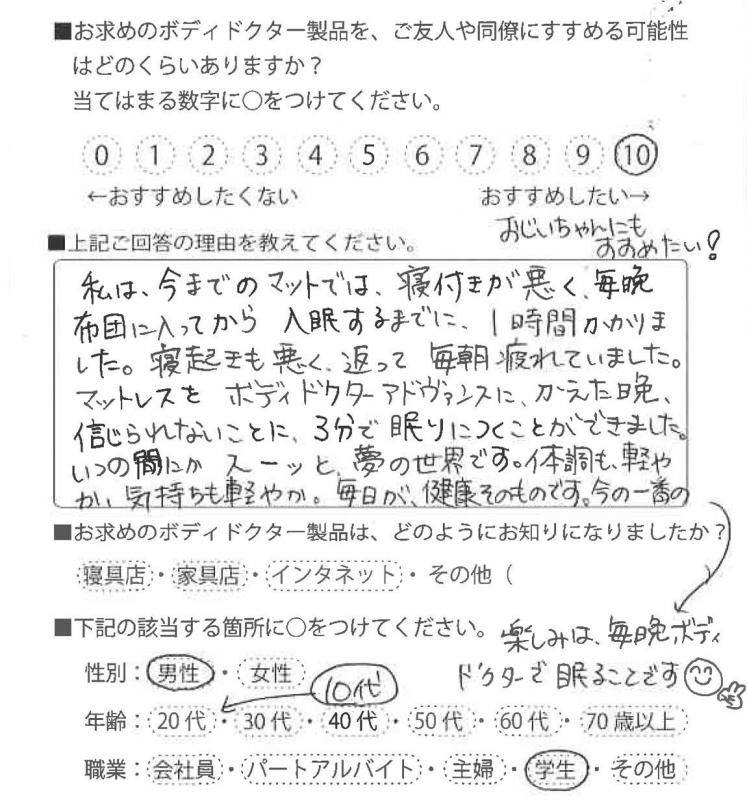 ■お求めのボディドクター製品を、ご友人や同僚にすすめる可能性
はどのくらいありますか？
当てはまる数字に○をつけてください。
0 1 2 3 4 5 6 7 8 9 10
←おすすめしたくない おすすめしたい→
おじいちゃんにも
すすめたい?
■上記ご回答の理由を教えてください。
私は、今までのマットでは、寝付きが悪く、毎晩
布団に入ってから 入眠するまでに、1時間かかりま
した。寝起きも悪く、返って 毎朝疲れていました。
マットレスを ボディドクターアドヴァンスに、かえた晩、
信じられないことに、3分で眠りにつくことができました。
いつの間にか スーッと、夢の世界です。体調も、軽や
か、気持ちも軽やか。毎日が、健康そのものです。今の一番の
■お求めのボディドクター製品は、どのようにお知りになりましたか？
寝具店・家具店・インタネット・その他（ ）
■下記の該当する箇所に○をつけてください。
楽しみは、毎晩ボディ
ドクターで眠ることです
性別：男性・女性
10代
年齢：20代・30代・40代・50代・60代・70歳以上
職業：会社員・パートアルバイト・主婦・学生・その他